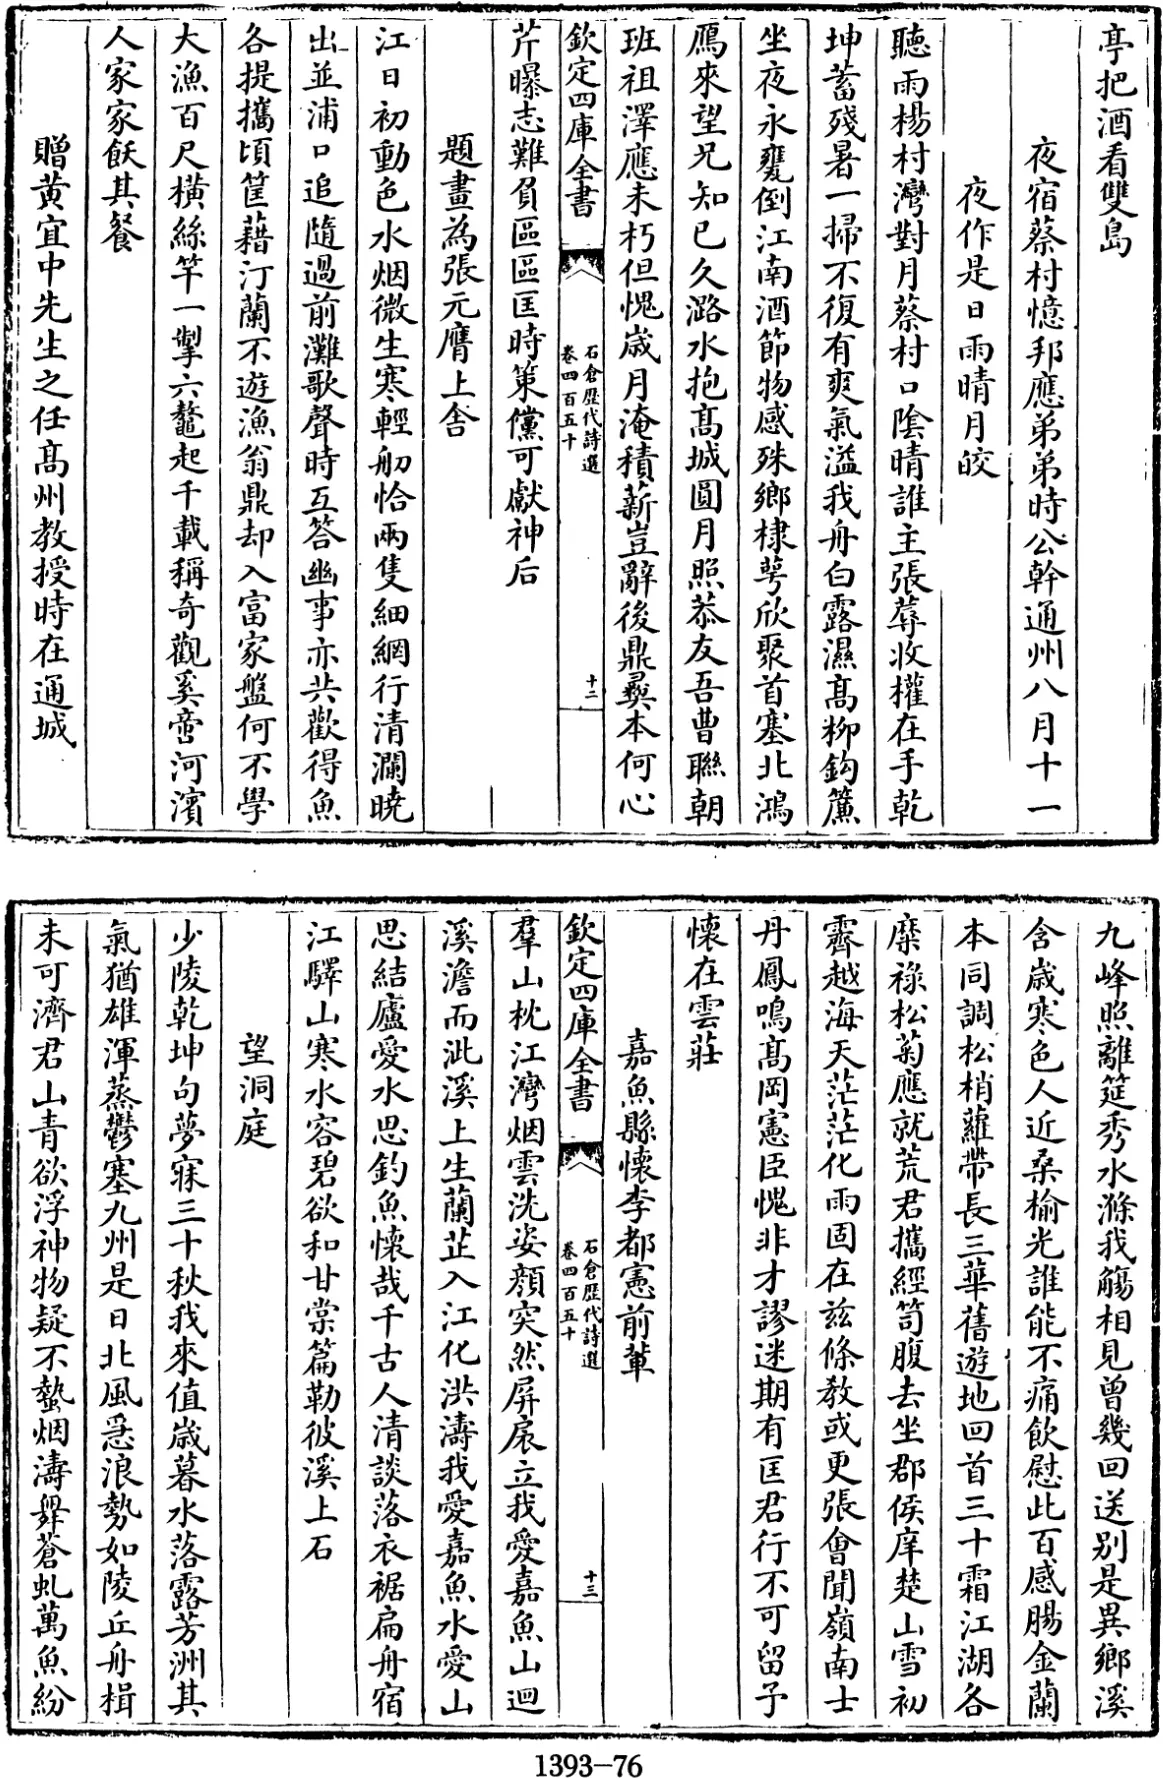 亭把酒看雙島
夜宿蔡村憶邦應弟弟時公幹通州八月十一
夜作是日雨晴月皎
聽雨楊村灣對月蔡村口陰晴誰主張蓐收權在手乾
坤蓄殘暑一掃不復有爽氣溢我舟白露濕髙柳鈎簾
坐夜永甕倒江南酒節物感殊鄉棣萼欣聚首塞北鴻
鴈來望兄知已久潞水抱髙城圓月照恭友吾曹聯朝
班祖澤應未朽但愧歲月淹積薪豈辭後鼎彛本何心
欽定四庫全書
石倉歷代詩選
卷四百五十
十二
芹曝志難負區區匡時策儻可獻神后
題畫為張元膺上舍
江日初動色水烟微生寒輕舠恰兩隻細網行清瀾曉
出並浦口追隨過前灘歌聲時互答幽事亦共歡得魚
各提攜頃筐藉汀蘭不遊漁翁鼎却入富家盤何不學
大漁百尺橫絲竿一掣六鼇起千載稱奇觀奚啻河濱
人家家飫其餐
贈黄宜中先生之任髙州教授時在通城
九峰照離筵秀水滌我觴相見曾幾回送别是異鄉溪
含歲寒色人近桑榆光誰能不痛飲慰此百感腸金蘭
本同調松梢蘿帶長三華舊遊地回首三十霜江湖各
縻祿松菊應就荒君攜經笥腹去坐郡侯庠楚山雪初
霽越海天茫茫化雨固在兹條教或更張㑹聞嶺南士
丹鳳鳴髙岡憲臣愧非才謬迷期有匡君行不可留予
懐在雲莊
嘉魚縣懐李都憲前軰
羣山枕江灣烟雲洗姿顔突然屏扆立我愛嘉魚山迴
欽定四庫全書
石倉歷代詩選
卷四百五十
十三
溪澹而泚溪上生蘭芷入江化洪濤我愛嘉魚水愛山
思結廬愛水思釣魚懐哉千古人清談落衣裾扁舟宿
江驛山寒水容碧欲和甘棠篇勒彼溪上石
望洞庭
少陵乾坤句夢寐三十秋我來值歲暮水落露芳洲其
氣猶雄渾蒸鬱塞九州是日北風急浪勢如陵丘舟楫
未可濟君山青欲浮神物疑不蟄烟濤舞蒼虬萬魚紛
1393-76